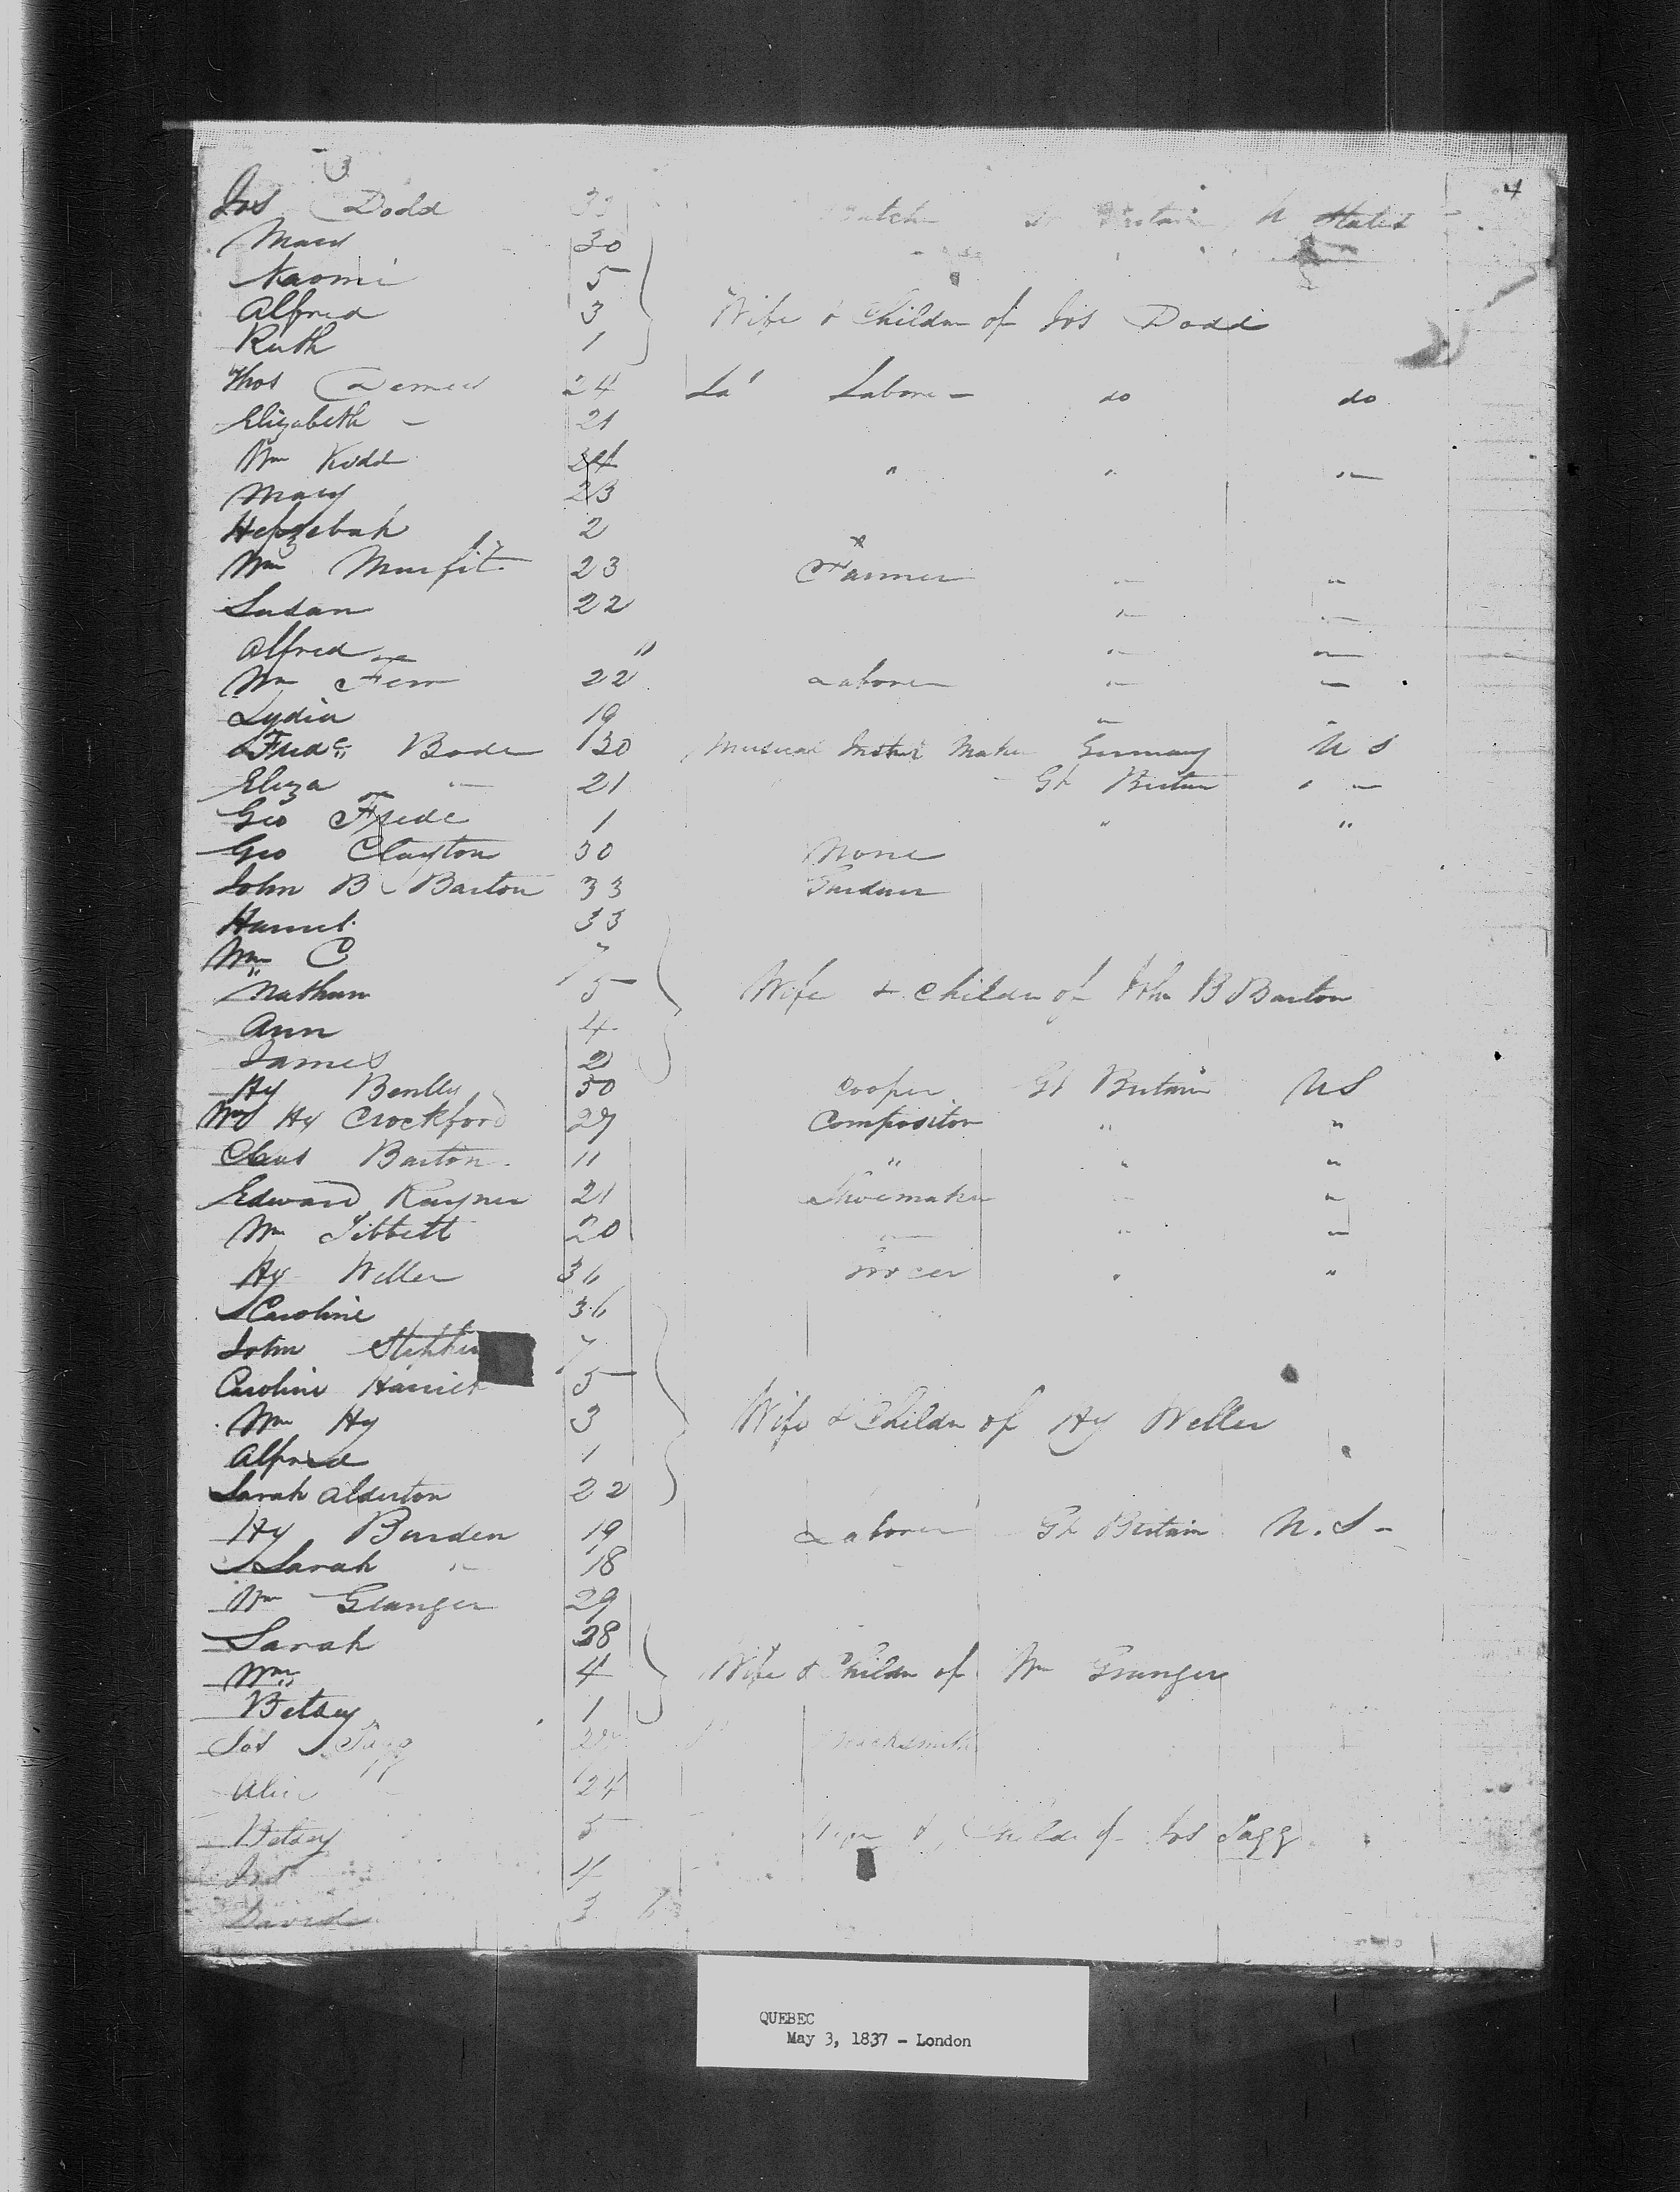 4
Jos Dodd 33 Butch Gt Britain U States
Mary 30
Naomi 5
Alfred 3 Wife & Childn of Jos Dodd
Ruth 1
Thos 24 La' Labore - do do
Elizabeth - 21
Wm Kidd 24 " " "
Mary 23
Hepzebah 2
Wm Murfit 23 Farmer " "
Susan 22 " "
Alfred " " "
Wm Fenn 22 Laborer " "
Lydia 19 " "
Fredc Bode 30 Musical Instrt Maker Germany U S
Eliza " 21 Gt Britain " "
Geo Frede 1 " "
Geo Clayton 30 None
John B Barton 33 Gardner
Harriet 33
Wm C 7
Nathan 5 Wife & Childn of John B Barton
Ann 4
James 2
Hy Bentley 50 Cooper Gt Britain U S
Wm Hy Crockford 27 Compositor " "
Chas Barton 11 " " "
Edward Rayner 21 Shoemaker " "
Wm Tibbett 20 " " "
Hy Weller 36 Grocer " "
Caroline 36
John Stephen 7
Caroline Harriet 5
Wm Hy 3 Wife & Childn of Hy Weller
Alfred 1
Sarah Alderton 22
Hy Burden 19 Laborer Gt Britain U. S -
Sarah " 18
Wm Granger 29
Sarah 28
Wm 4 Wife & Childn of Wm Granger
Betsey 1
Jos Tagg Blacksmith
Alice 24
Betsey 5 Wife & Childn of Jos Tagg
Jos 4
David 3
QUEBEC
May 3, 1837 - London